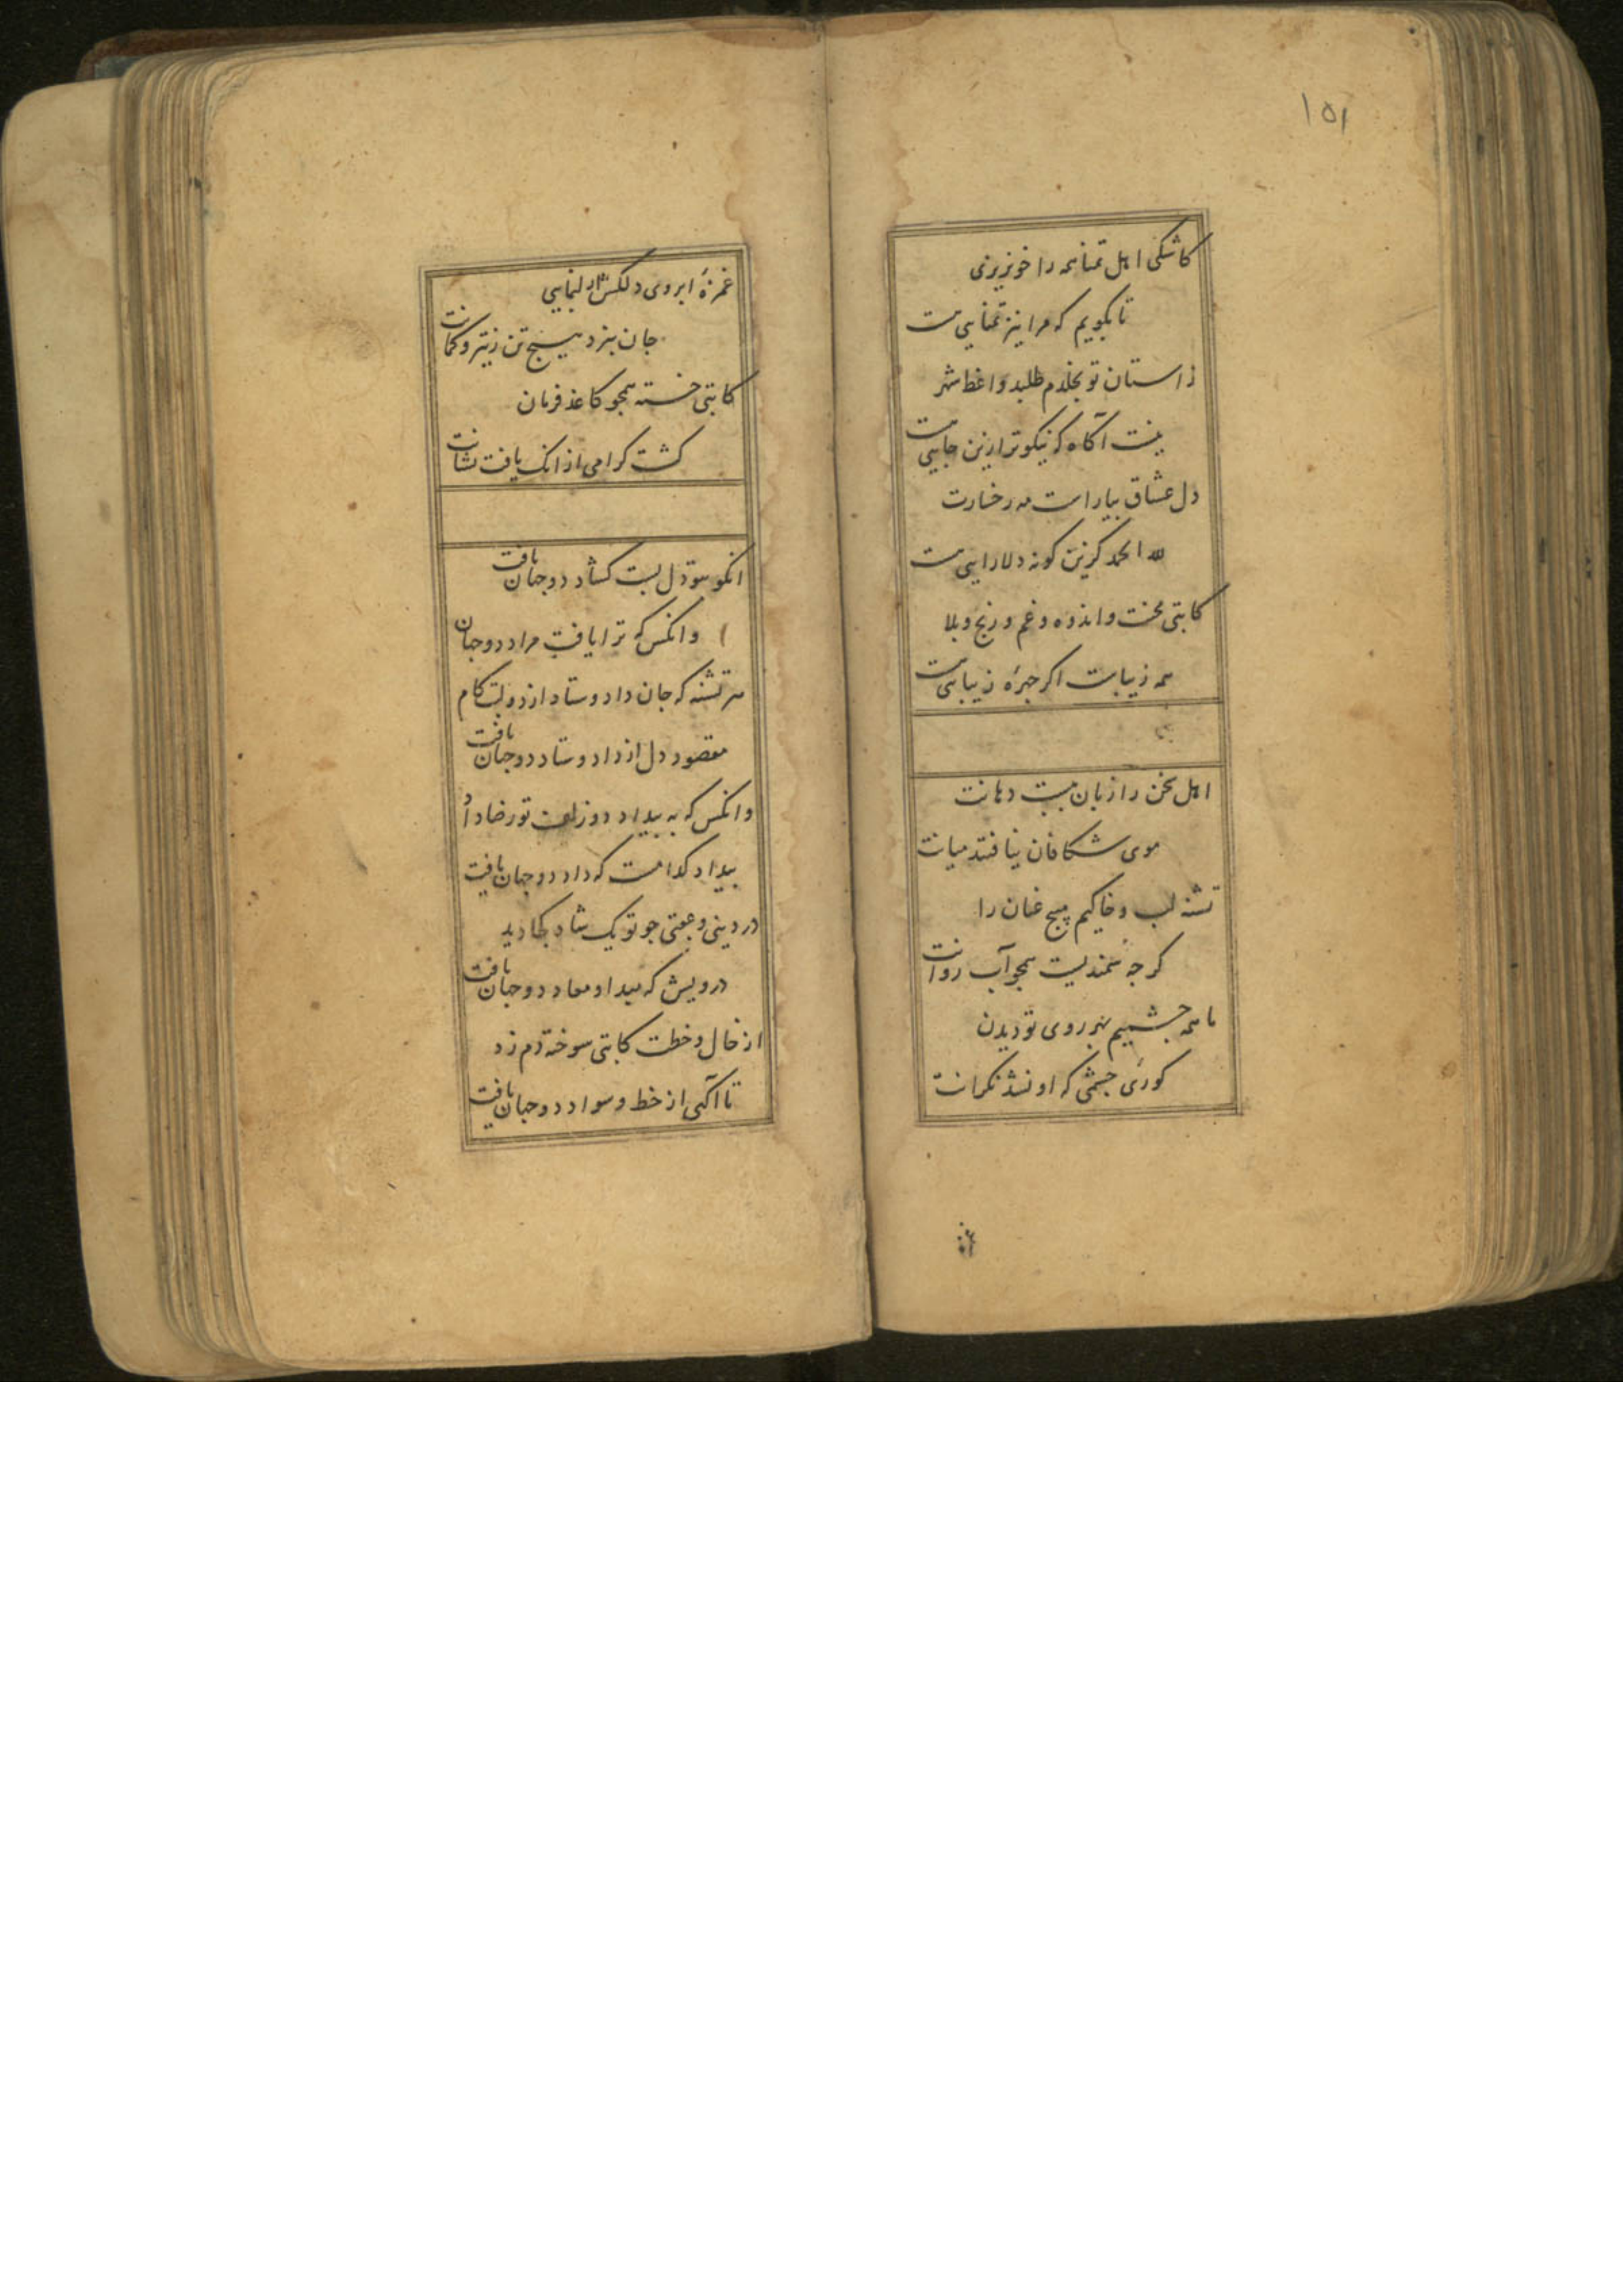 ۱۵۱
کاشکی اهل تمنا همه را خون ریزی
تا بگویم که مرا نیز تمنایی هست
ز استان تو بخلدم طلبد واعظ شهر
نیست آگاه که نیکوتر ازین جایی هست
دل عشاق بیاراست مه رخسارت
لله الحمد کزین گونه دلارایی هست
کاتبی محنت و اندوه و غم و رنج و بلا
همه زیباست اگر چهرهٔ زیبایی هست
اهل سخن را زبان ببست دهانت
موی شکافان نیافتند میانت
تشنه لب و خاکیم مپیچ عنان را
کرچه سمندیست همچو آب روانت
ما همه چشمیم بهر روی تو دیدن
کوری چشمی که او نشد نگرانت
غمزهٔ ابروی دلکش ار بنمایی
جان نبرد هیچ تن ز تیر و کمانت
کاتبی خسته همچو کاغذ فرمان
کشت کرامی از انک یافت نشانت
انکو بتو دل بست کشاد دو جهان یافت
وانکس که ترا یافت مراد دو جهان
هر تشنه که جان داد و ستاد از دو لبت کام
مقصود دل از داد و ستاد دو جهان یافت
وانکس که به بیداد دو زلف تو رضا داد
بیداد کدامست که داد دو جهان یافت
در دینی و عقبی چو تو یک شاه کجا دید
درویش که مبدا و معاد دو جهان یافت
از خال و خطت کاتبی سوخته دم زد
تا آکهی از خط و سواد دو جهان یافت